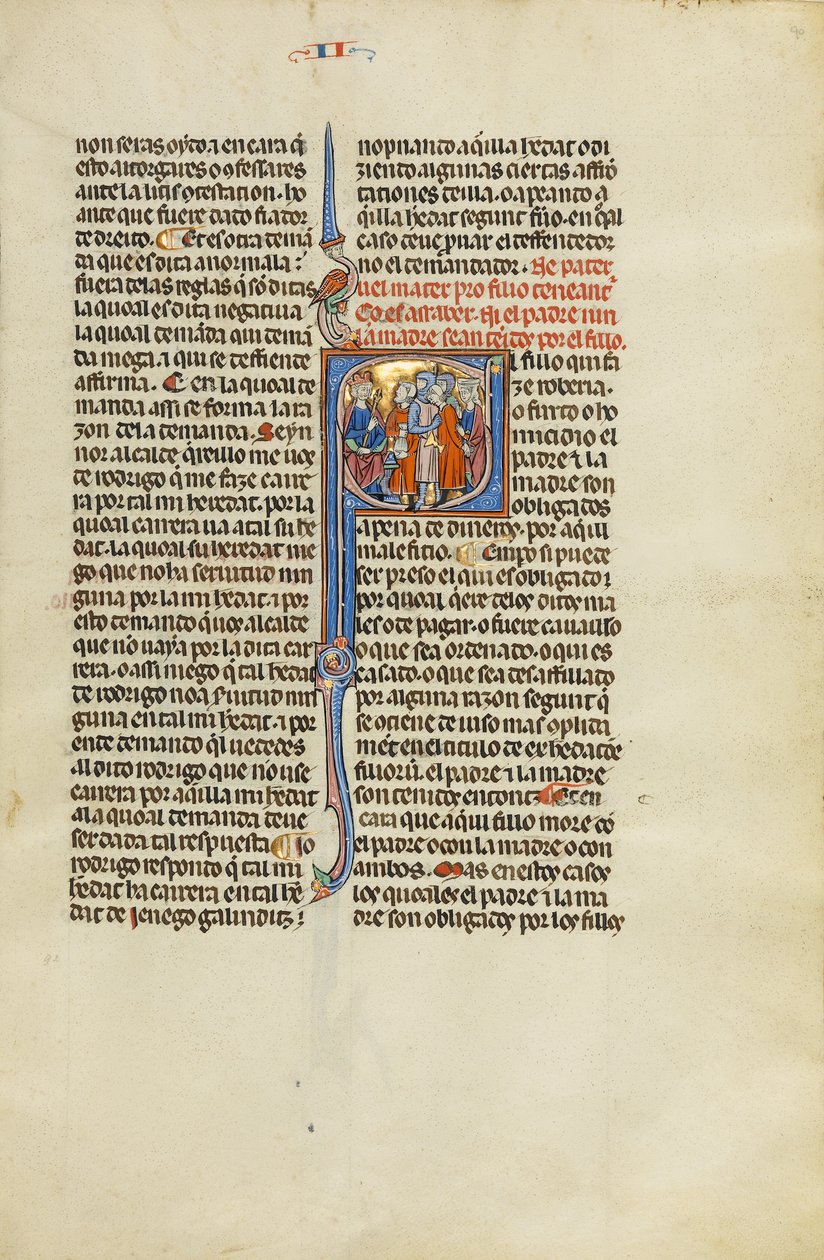 II
90
non seras oydo. ⁊ en cara q̄
esto atorgares o ꝯfessares
ante la litis ꝯtestation. ho
ante que fuere dado fiador
de dreito. ¶ Et es otra demā
da que es dita anormala:
fuera de las reglas q̄ sō ditas
la quoal es dita negatiua
la quoal demāda qui demā
da niega. ⁊ qui se deffiende
affirma. ¶ En la quoal de
manda assi se forma la ra
zon de la demanda. Seyn
nor alcalde q̄reillo me uos
de rodrigo q̄ me faze carre
ra por tal mi heredat. por la
quoal carrera ua a tal su he
dat. la quoal su heredat nie
go que no ha seruitud nin
guna por la mi hēdat. ⁊ por
esto demando q̄ uos alcalde
que nō uaya por la dita car
rera. o assi niego q̄ tal hēdat
de rodrigo no a ſuitud nin
guna en tal mi hēdat. ⁊ por
ende demando q̄l uededes
al dito rodrigo que nō use
carrera por aq̄illa mi hēdat
a la quoal demanda deue
ser dada tal respuesta ¶ Io
rodrigo respondo q̄ tal mi
hēdat ha carrera en tal hē
dat de ienego galinditz:
nopnando aq̄illa hēdat o di
ziendo algunas ciertas affrō
tationes deilla. o apeando a
q̄illa hēdat segunt fuo. en q̄l
caso deue ꝓuar el deffendedor
no el demandador. Ne pater
uel mater pro filio teneant̄
Co es assaber. Ni el padre nin
la madre sean tēidos por el fillo.
El fillo qui fa
ze roberia.
o furto o ho
micidio el
padre ⁊ la
madre son
obligados
a pena de dineros. por aq̄ill
maleficio. ¶ Empo si puede
ser preso el qui es obligado:
por quoal q̄ere delos ditos ma
les o de pagar. o fuere cauaillo
o que sea ordenado. o qui es
casado. o que sea desaffillado
por alguna razon segunt q̄
se ɔtiene de iuso mas ꝯplida
mēt en el titulo de exhēdatōe
filiorū. el padre ⁊ la madre
son tenidos entontz ¶ Et en
cara que aq̄ill fillo more cō
el padre o con la madre o con
ambos. Mas en estos casos
los quoales el padre ⁊ la ma
dre son obligados por los fillos